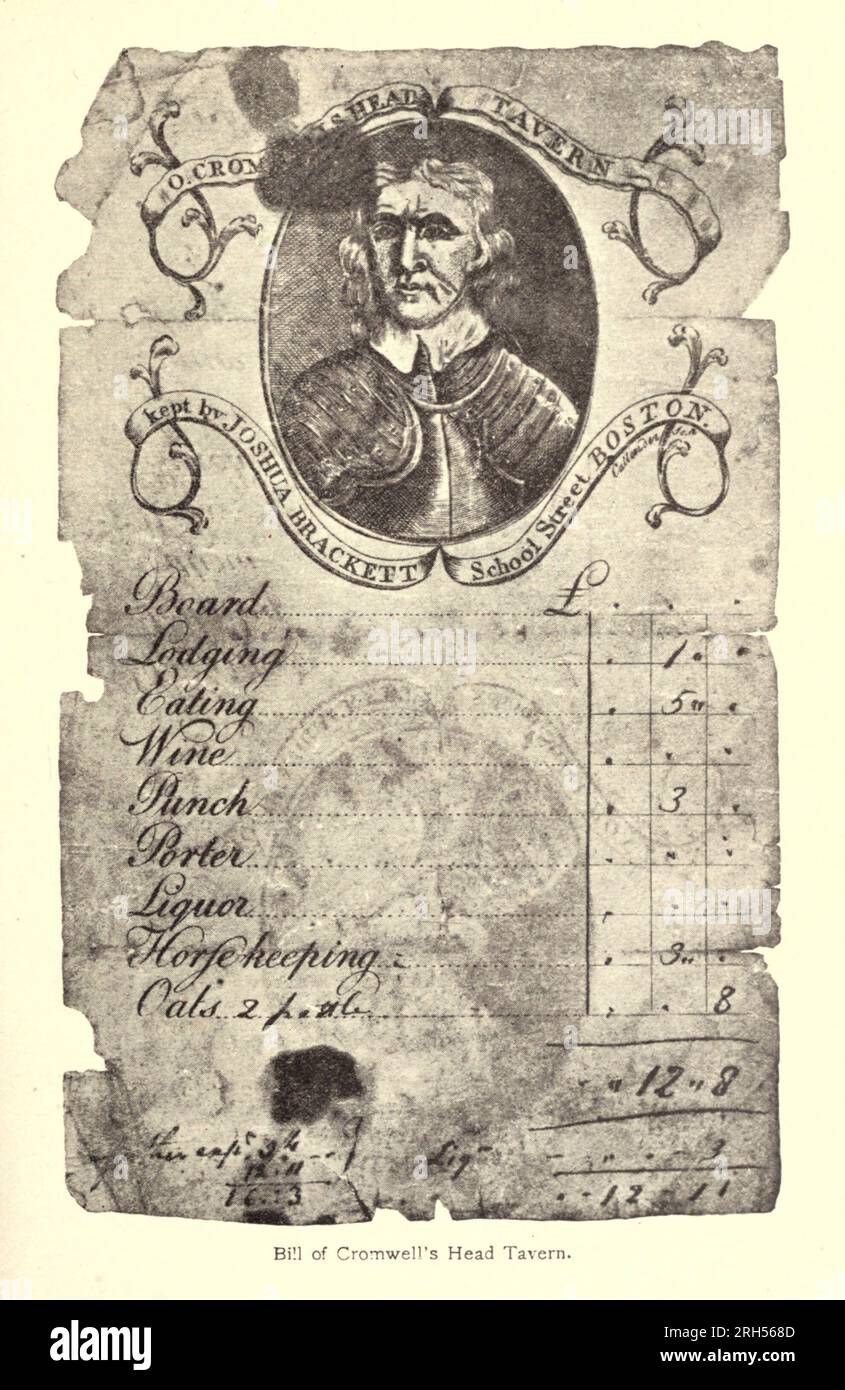 O. CROM LS HEAD TAVERN
kept by JOSHUA BRACKETT School Street BOSTON.
Callender Sc.
Board £
Lodging 1 "
Eating 5 "
Wine
Punch 3
Porter
Liquor
Horsekeeping 3 "
Oats 2 8
" 12 " 8
Liqr 3
12 11
16 : 3
12 - 11
Bill of Cromwell's Head Tavern.
alamy
Image ID: 2RH568D
www.alamy.com